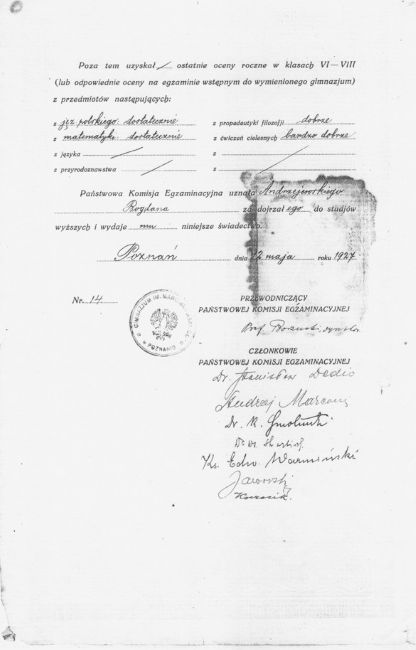 Poza tem uzyskał / ostatnie oceny roczne w klasach VI — VIII
(lub odpowiednie oceny na egzaminie wstępnym do wymienionego gimnazjum)
z przedmiotów następujących:
z jęz. polskiego: dostatecznie z propedeutyki filozofji dobrze
z matematyki: dostatecznie z ćwiczeń cielesnych bardzo dobrze
z języka z
z przyrodoznawstwa z
Państwowa Komisja Egzaminacyjna uznała Andrzejewskiego
Bogdana za dojrzałego do studjów
wyższych i wydaje mu niniejsze świadectwo.
Poznań dnia 12 maja roku 1927
Nr. 14
PRZEWODNICZĄCY
PAŃSTWOWEJ KOMISJI EGZAMINACYJNEJ
Prof.
CZŁONKOWIE
PAŃSTWOWEJ KOMISJI EGZAMINACYJNEJ
Dr. Stanisław Dedio
Andrzej
Dr. K.
Dr.
Ks. Edw. Warmiński
Jaworski
GIMNAZJUM IM. W POZNANIU